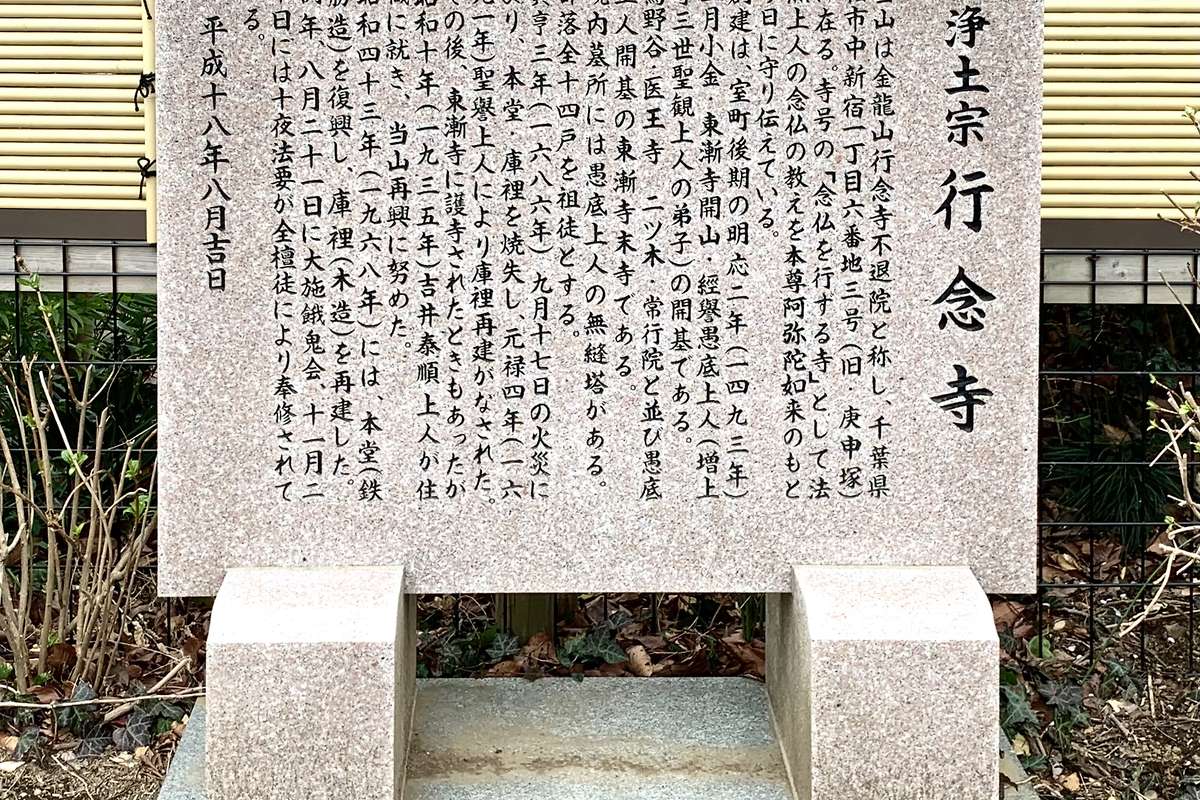 浄土宗 行念寺
山は金龍山行念寺不退院と称し、千葉県
市中新宿一丁目六番地三号(旧・庚申塚)
在る。寺号の「念仏を行ずる寺」として法
然上人の念仏の教えを本尊阿弥陀如来のもと
日に守り伝えている。
創建は、室町後期の明応二年(一四九三年)
月小金・東漸寺開山・經譽愚底上人(増上
寺三世聖観上人の弟子)の開基である。
馬野谷・医王寺 二ツ木・常行院と並び愚底
上人開基の東漸寺末寺である。
境内墓所には愚底上人の無縫塔がある。
部落全十四戸を祖徒とする。
貞享三年(一六八六年)九月十七日の火災に
より、本堂・庫裡を焼失し、元禄四年(一六
九一年)聖譽上人により庫裡再建がなされた。
その後 東漸寺に護寺されたときもあったが
昭和十年(一九三五年)吉井泰順上人が住
職に就き、当山再興に努めた。
昭和四十三年(一九六八年)には、本堂(鉄
筋造)を復興し、庫裡(木造)を再建した。
年、八月二十一日に大施餓鬼会、十一月二
日には十夜法要が全檀徒により奉修されて
る。
平成十八年八月吉日